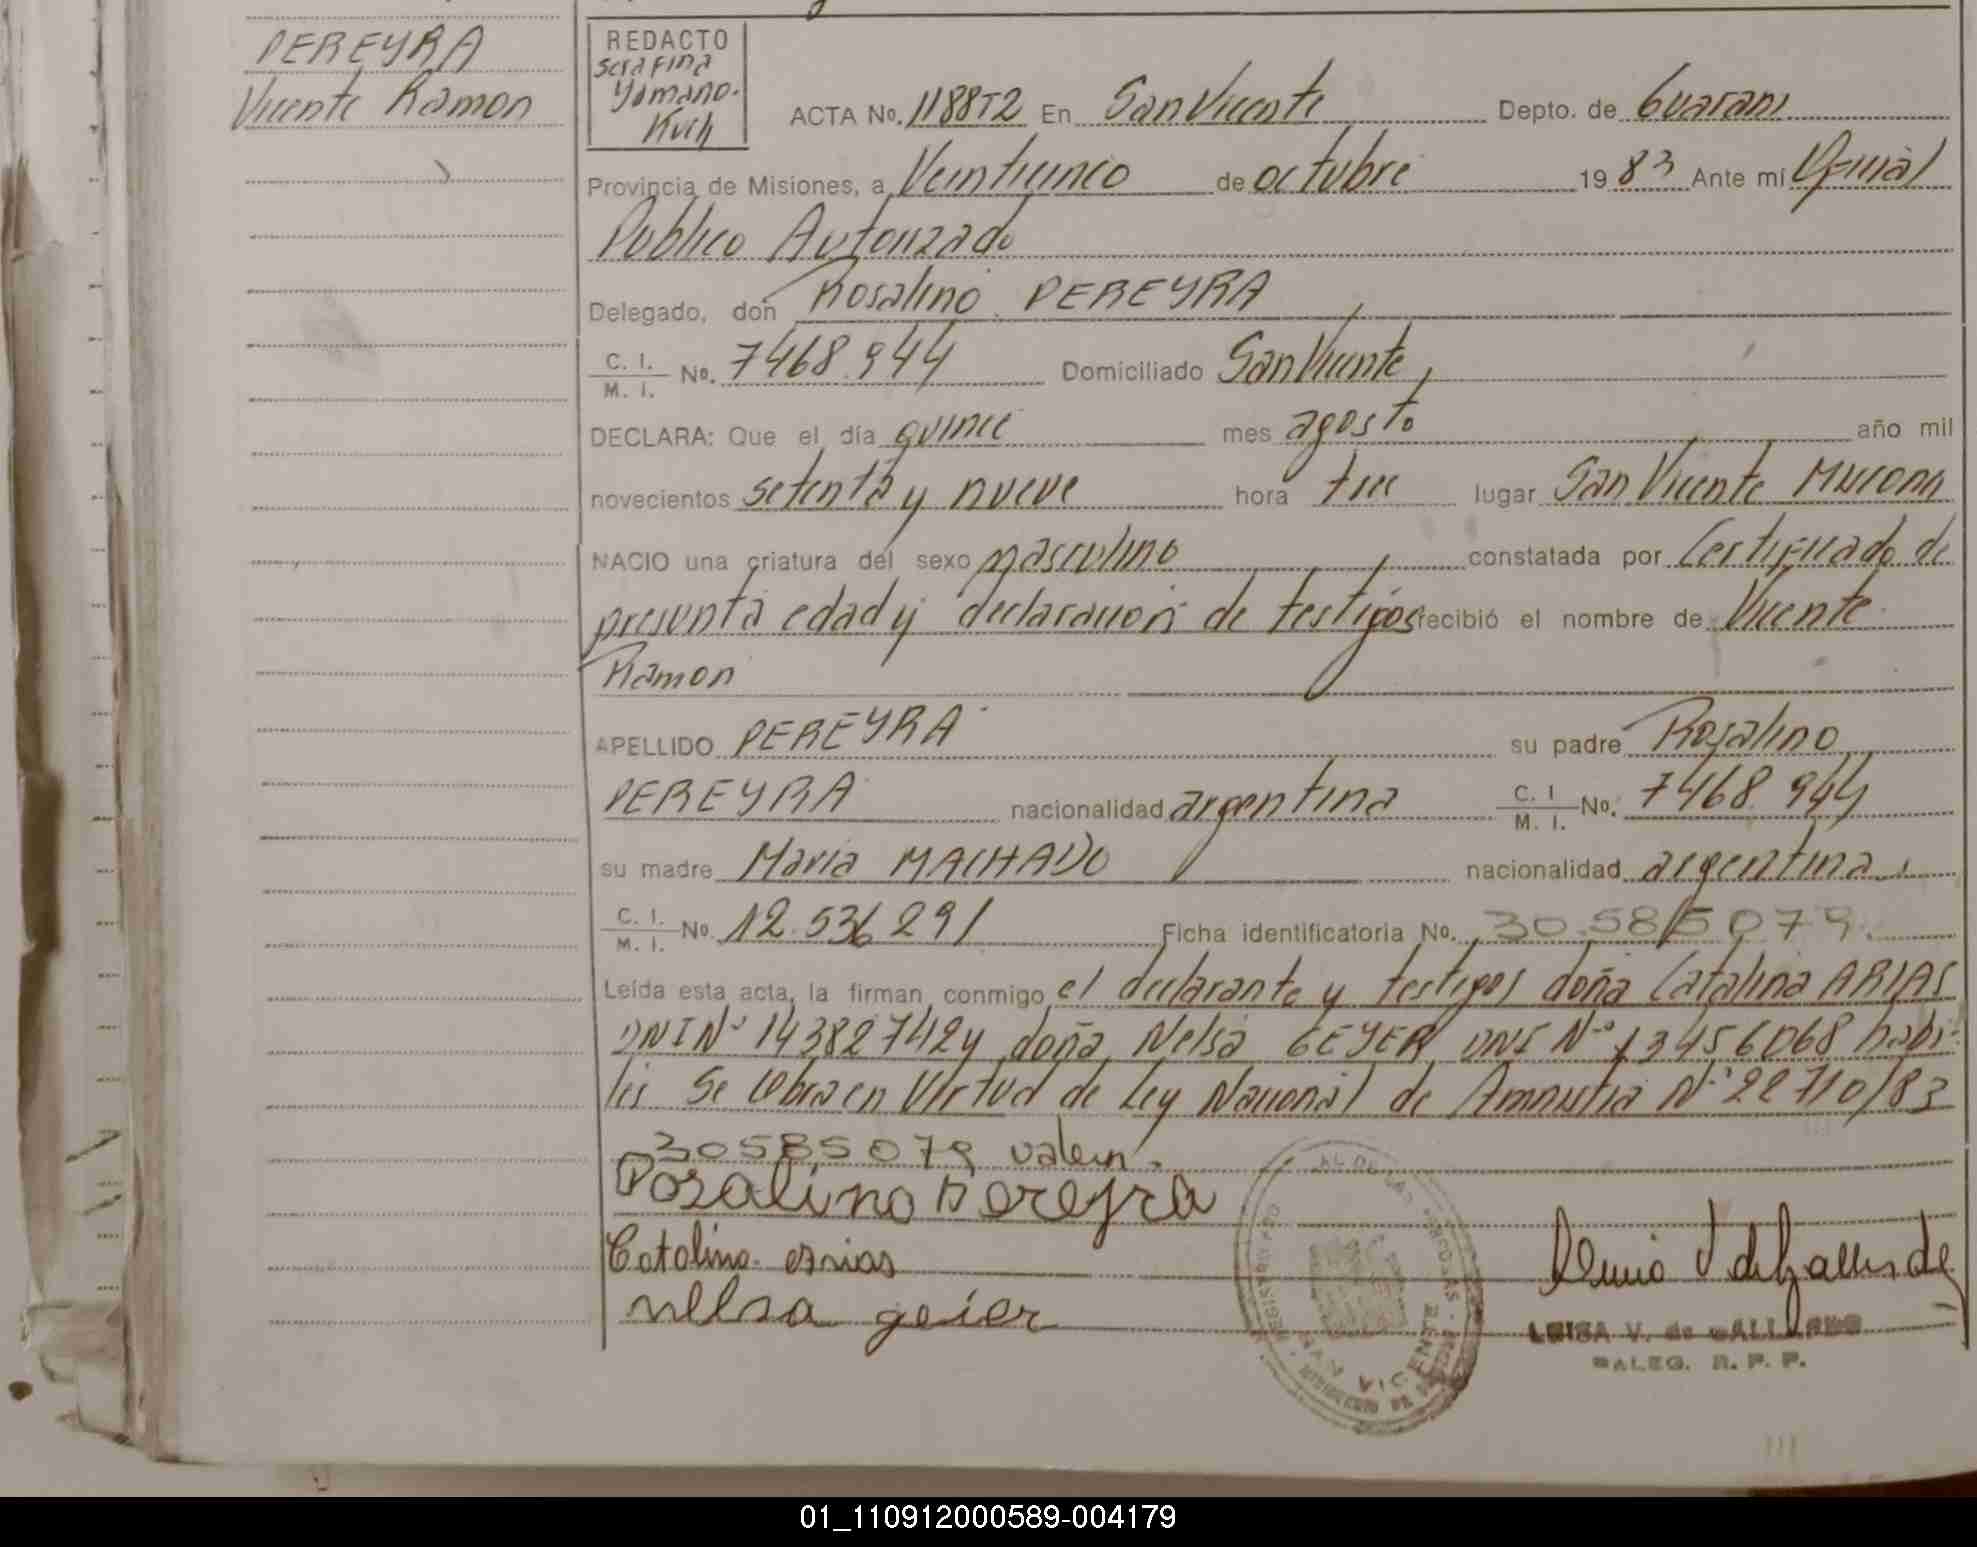 PEREYRA
Vicente Ramon
REDACTO
Serafina
Yamano.
Kuch
ACTA No. 1188T2 En San Vicente Depto. de Guarani
Provincia de Misiones, a Veinticinco de octubre 1983 Ante mí Oficial
Publico Autorizado
Delegado, don Rosalino PEREYRA
C. I. / M. I. No. 7468.944 Domiciliado San Vicente,
DECLARA: Que el día quince mes agosto año mil
novecientos setenta y nueve hora trece lugar San Vicente Misiones
NACIO una criatura del sexo masculino constatada por Certificado de
presunta edad y declaracion de testigos recibió el nombre de Vicente
Ramon
APELLIDO PEREYRA su padre Rosalino
PEREYRA nacionalidad argentina C. I / M. I. No. 7468.944
su madre Maria MACHADO nacionalidad argentina
C. I. / M. I. No. 12.536 291 Ficha identificatoria No. 30.585079.
Leída esta acta, la firman conmigo el declarante y testigos doña Catalina ARIAS
DNI Nº 14382742 y doña Nelsa GEYER DNI Nº 13456068 habi-
les Se labra en Virtud de Ley Nacional de Amnistia Nº 22710/83
30585079 valen.
Rosalino Pereyra
Catalina arias
nelsa geier
SAN VICENTE
LUISA V. de GALLARDO
DALEG. R. P. P.
01_110912000589-004179